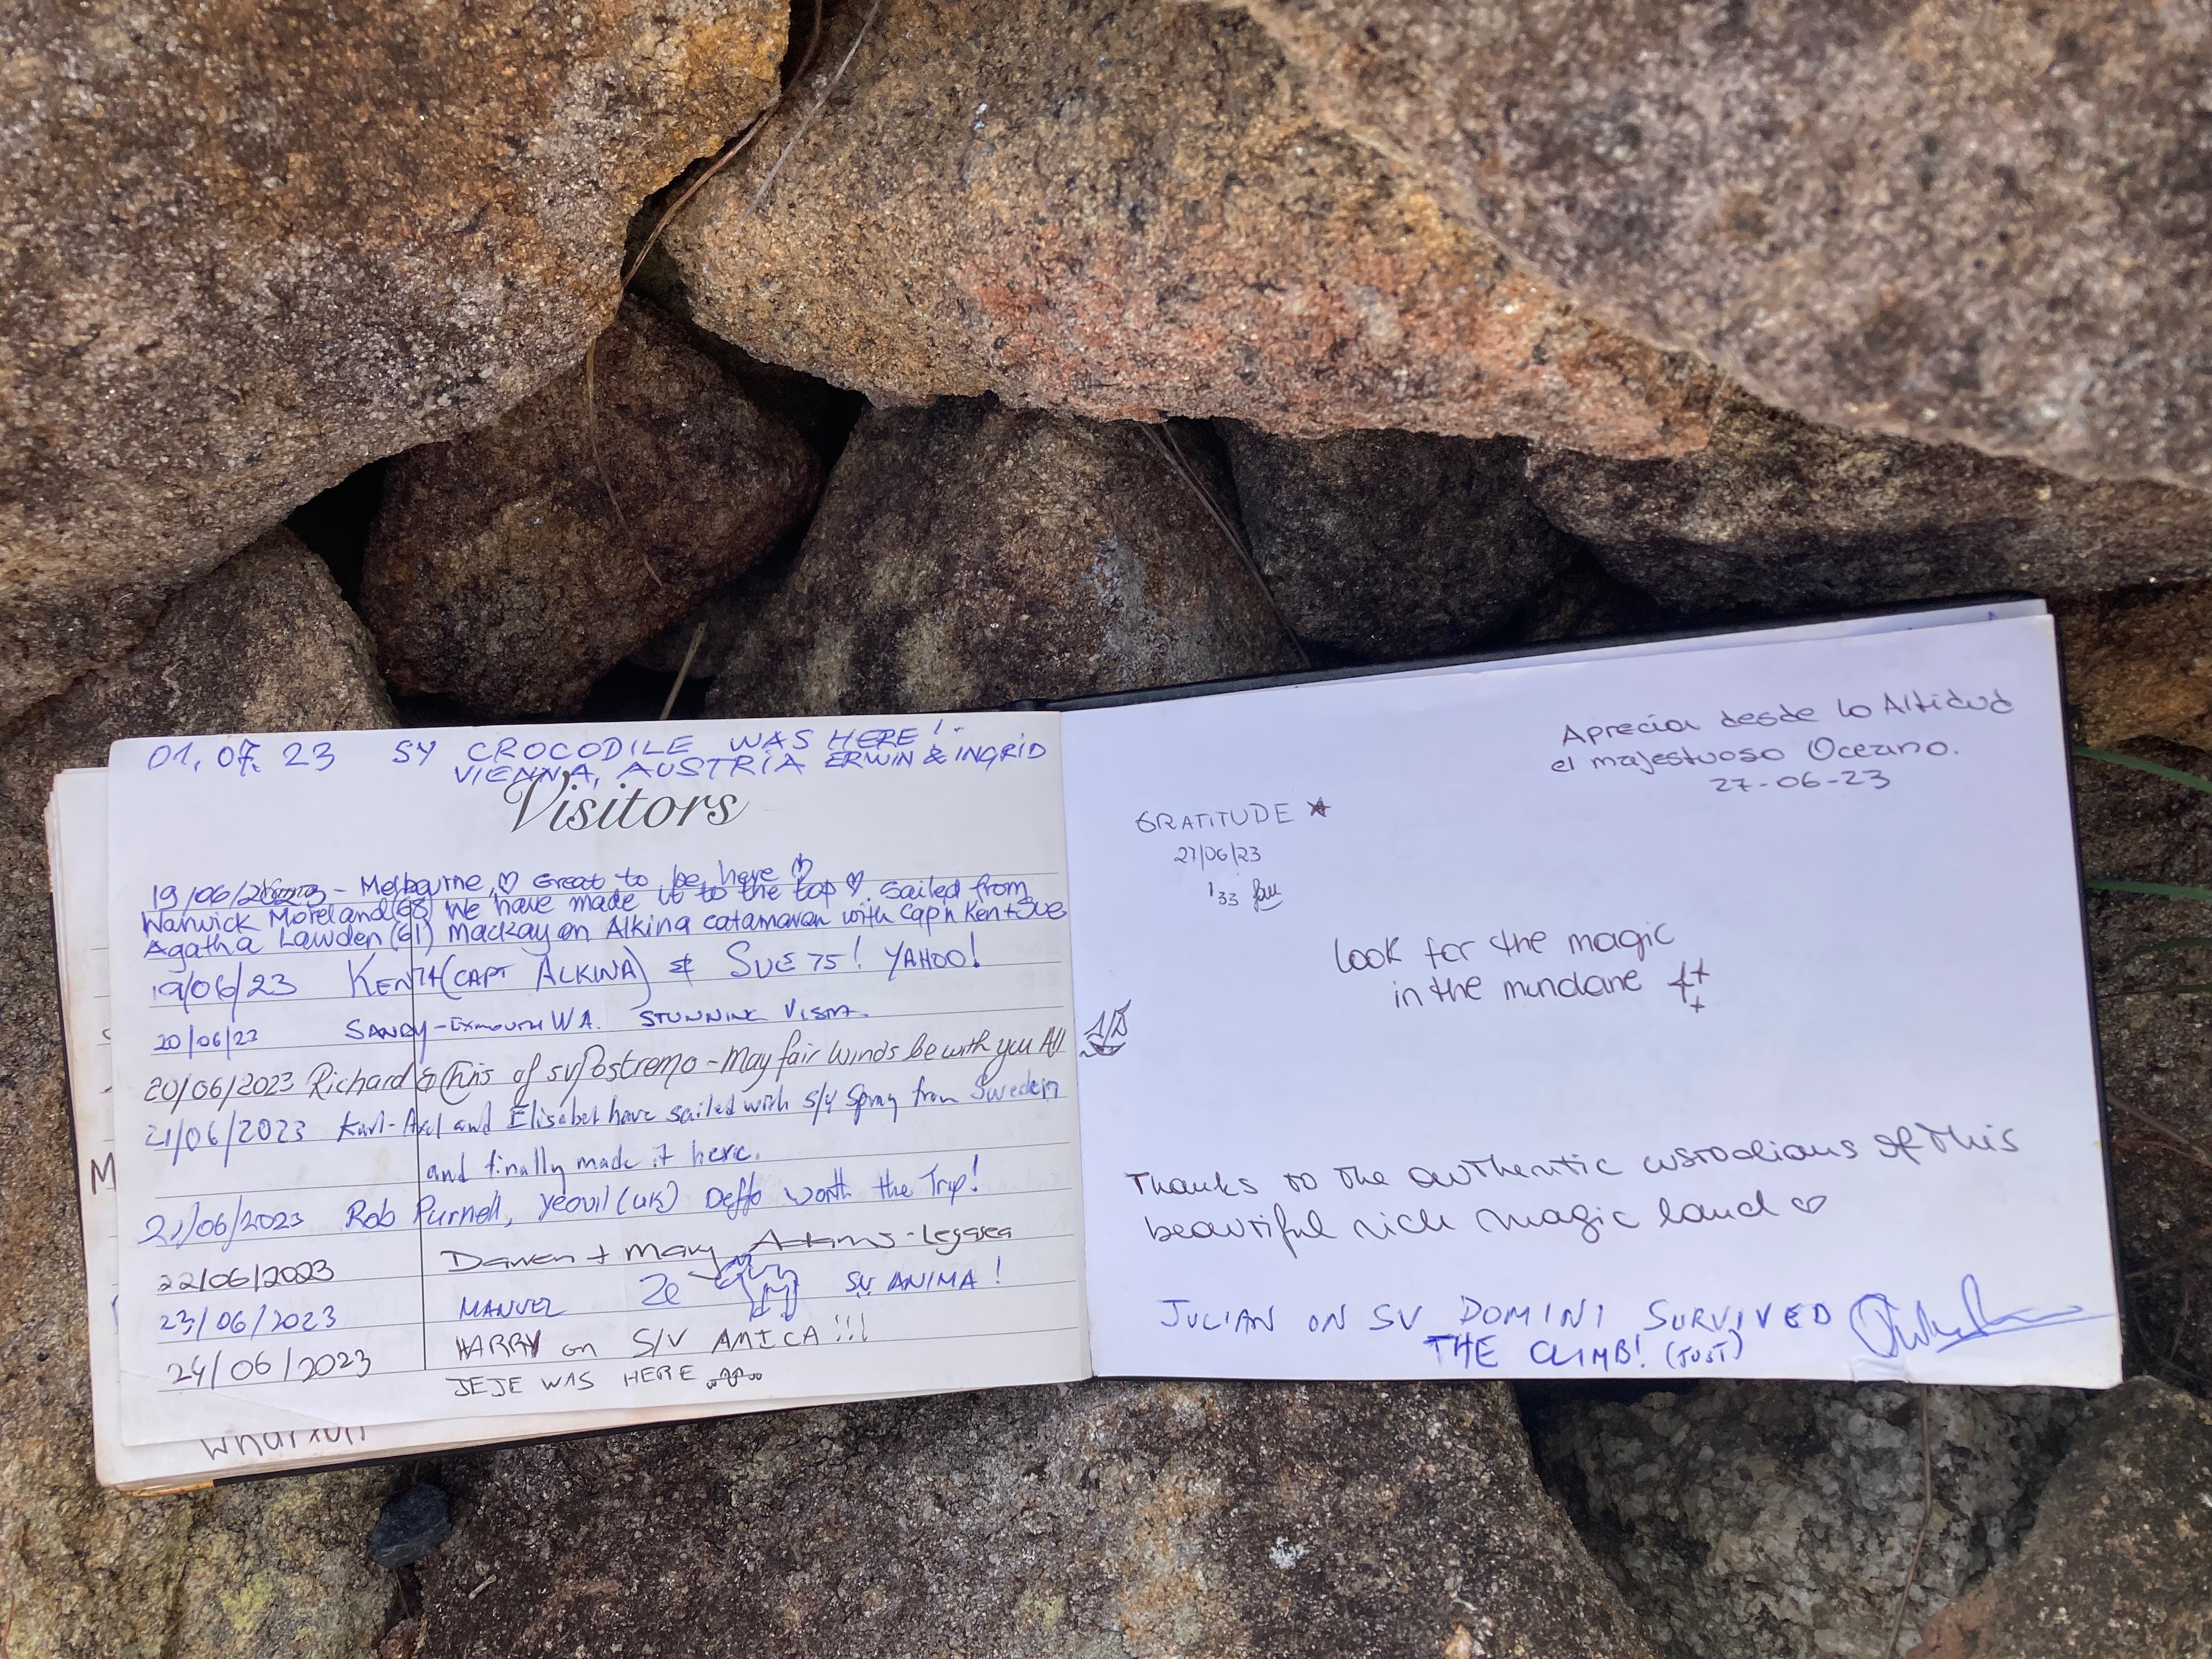 01.07.23 SY CROCODILE WAS HERE!
VIENNA, AUSTRIA ERWIN & INGRID
Visitors
19/06/2023 - Melbourne, ♡ Great to be here ♡
Warwick Moreland (68) We have made it to the top ♡. Sailed from
Agatha Lawden (61) Mackay on Alkina catamaran with Cap'n Ken + Sue
19/06/23 KEN 74 (CAPT ALKINA) & SUE 75! YAHOO!
20/06/23 SANDY - EXMOUTH WA. STUNNING VISTA.
20/06/2023 Richard & Chris of sv Postremo - May fair winds be with you All
21/06/2023 Karl-Axel and Elisabet have sailed with S/Y Spray from Sweden
and finally made it here.
21/06/2023 Rob Purnell, Yeovil (UK) Deffo worth the Trip!
22/06/2023 Darren + Mary Adams - Legasea
23/06/2023 MANUEL Ze SV ANIMA!
24/06/2023 HARRY on S/V AMICA!!!
JEJE WAS HERE
M
wharton
Apreciar desde lo Altitud
el majestuoso Oceano.
27-06-23
GRATITUDE
27/06/23
133
Look for the magic
in the mundane
Thanks to the authentic custodians of this
beautiful rich magic land ♡
JULIAN ON SV DOMINI SURVIVED
THE CLIMB! (JUST)